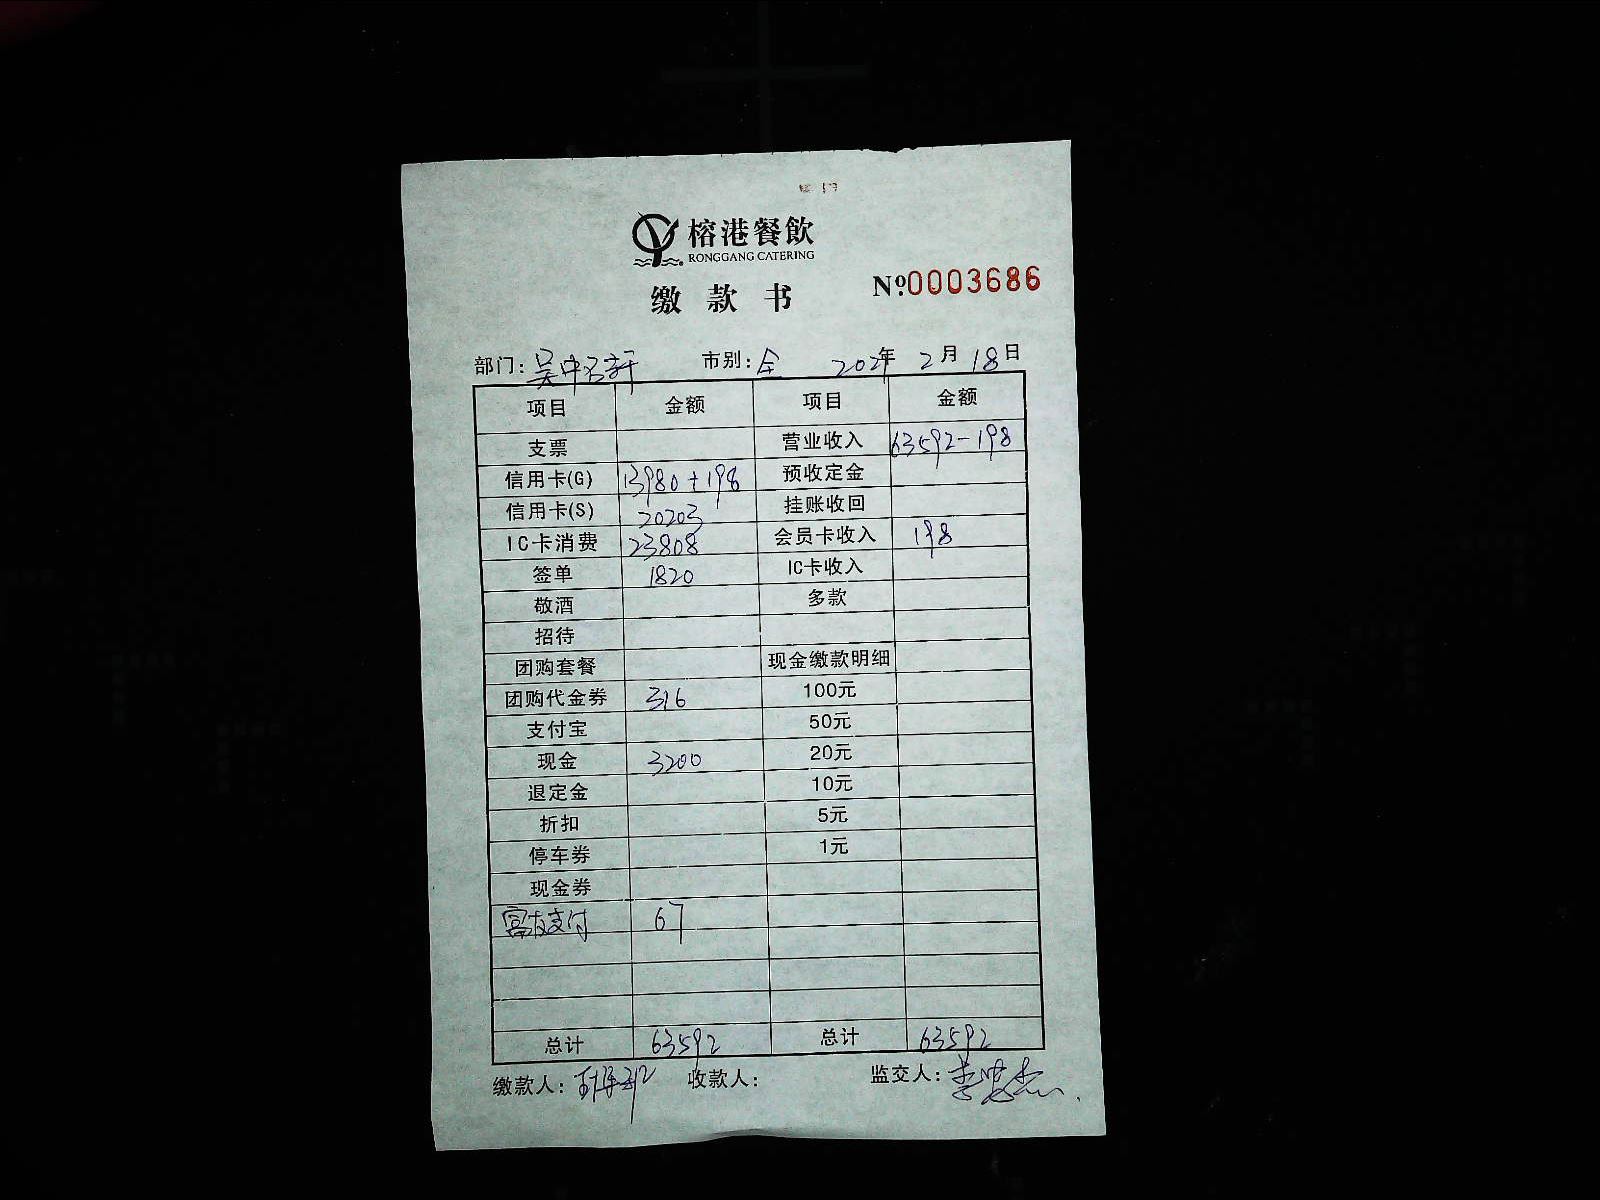 榕港餐飲
RONGGANG CATERING
缴款书
Nº.0003686
部门：吴中名轩 市别：全 2021年 2月 18日
项目 金额 项目 金额
支票 营业收入 63592-198
信用卡(G) 13980+198 预收定金
信用卡(S) 20203 挂账收回
IC卡消费 23808 会员卡收入 198
签单 1820 IC卡收入
敬酒 多款
招待
团购套餐 现金缴款明细
团购代金券 316 100元
支付宝 50元
现金 3200 20元
退定金 10元
折扣 5元
停车券 1元
现金券
富友支付 67
总计 63592 总计 63592
缴款人： 收款人： 监交人：